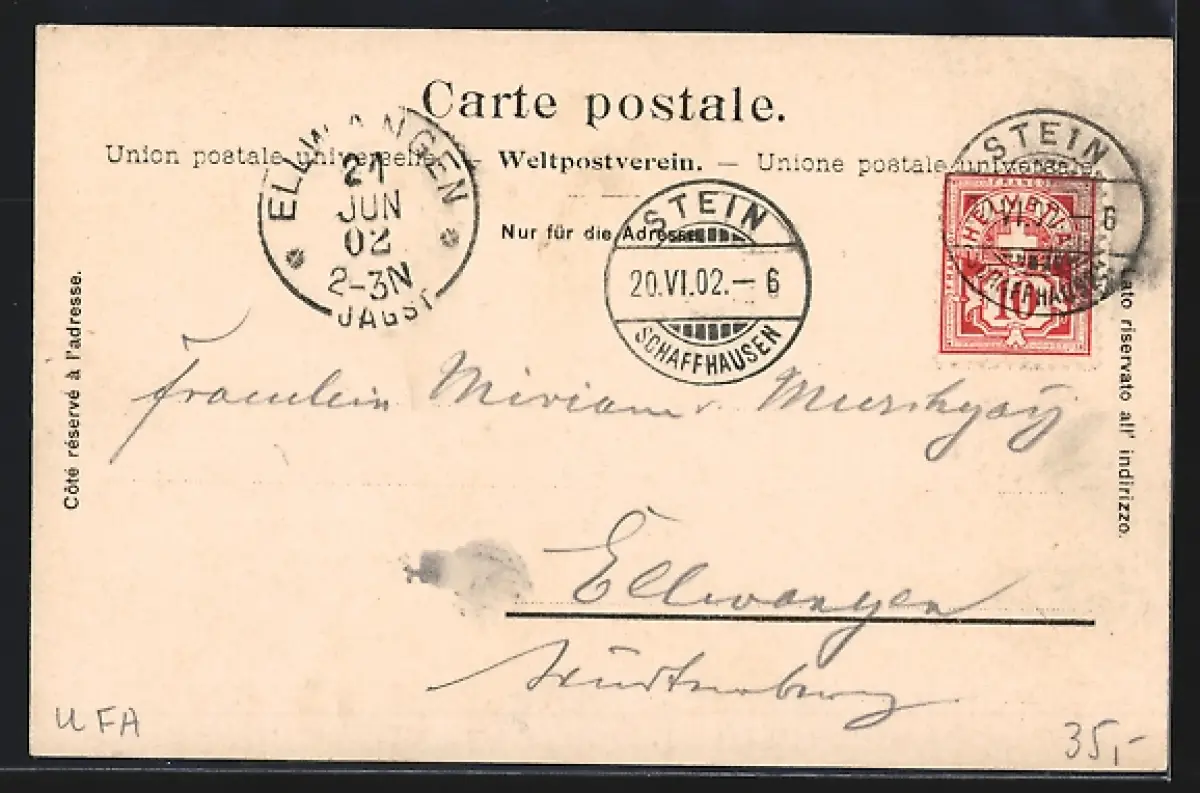 Carte postale.
Union postale universelle. — Weltpostverein. — Unione postale universale.
Nur für die Adresse.
ELLWANGEN
21
JUN
02
2-3N
JAGST
STEIN
20.VI.02.–6
SCHAFFHAUSEN
STEIN
VI –6
SCHAFFHAUSEN
FRANCO
HELVETIA
10
Côté réservé à l'adresse.
Lato riservato all' indirizzo.
Fraeulein Miriam v.
Ellwangen
Württemberg
UFA
35,-